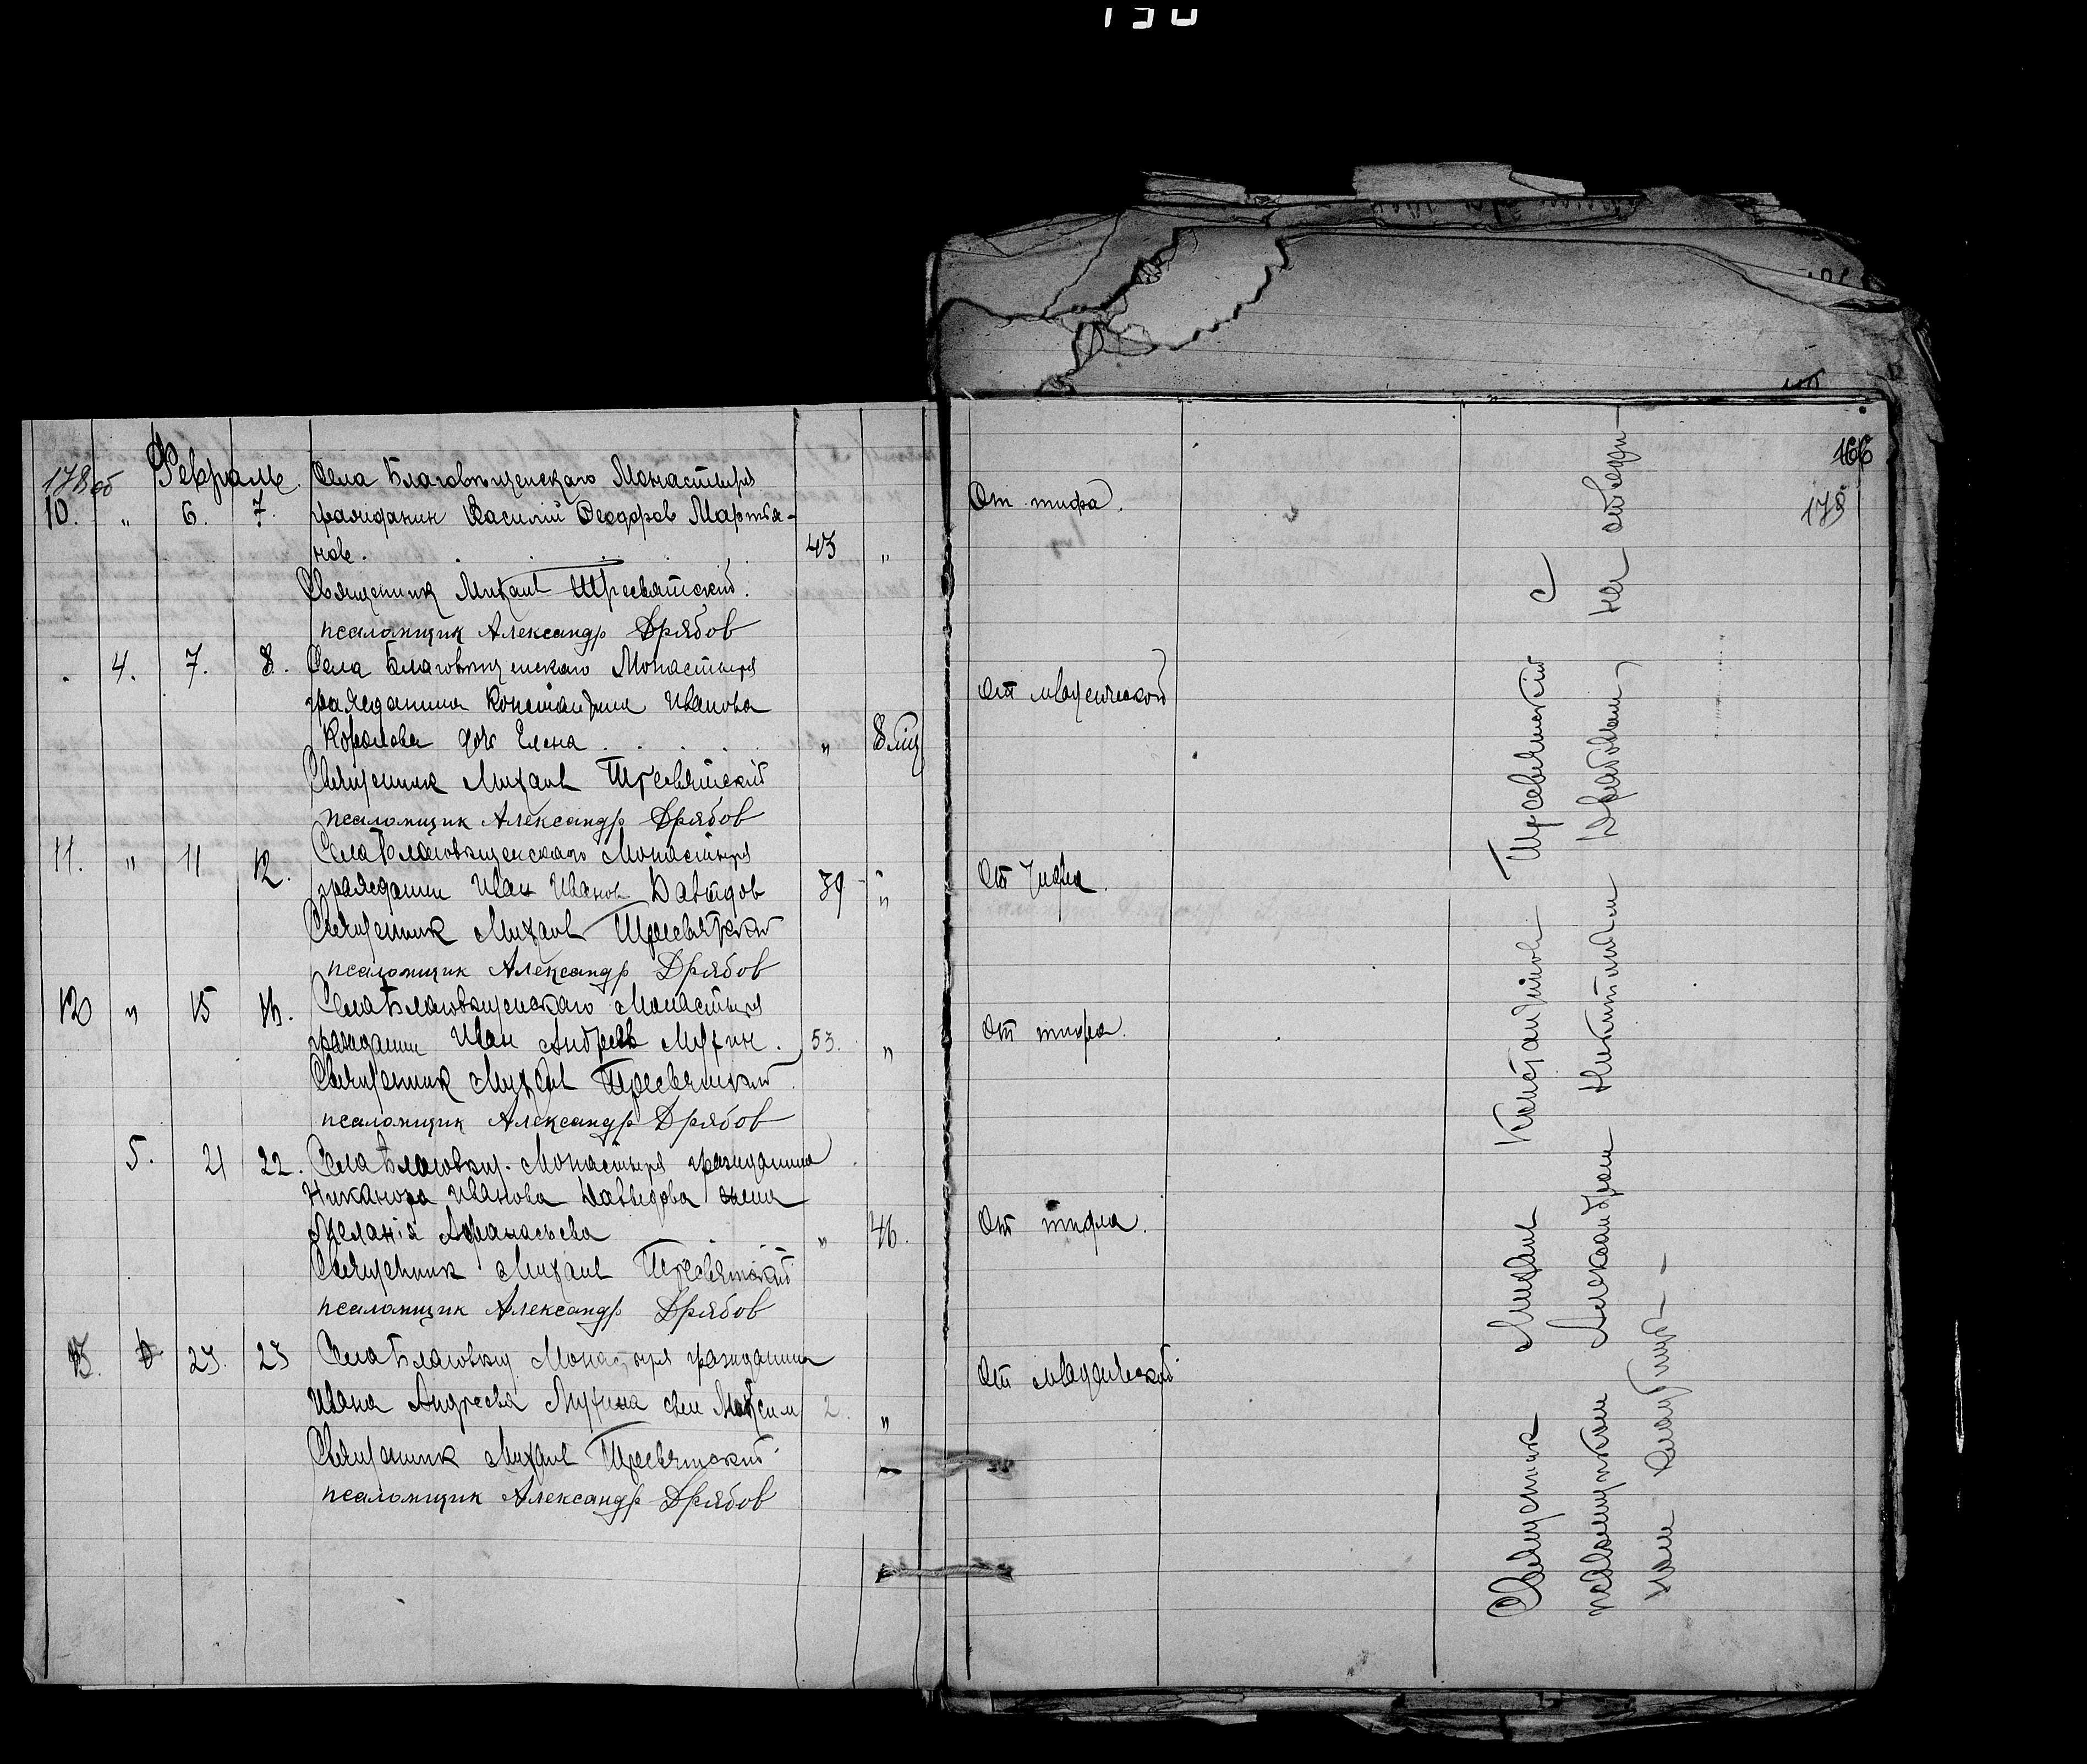 130
178 об Февраль. Села Благовещенскаго Монастыря
10. " 6. 7. гражданин Василий Феодоров Мартья-
нов. 43 "
Священник Михаил Тресвятский.
псаломщик Александр Дрябов
4. 7. 8. Села Благовещенскаго Монастыря
гражданина Константина Иванова
дочь Елена " 8 м
Священник Михаил Тресвятский
псаломщик Александр Дрябов
11. " 11 12. Села Благовещенскаго Монастыря
гражданин Иван Иванов Давыдов 39 "
Священник Михаил Тресвятский
псаломщик Александр Дрябов
12 " 15 Села Благовещенскаго Монастыря
гражданин Иван Андреев 53. "
Священник Михаил Тресвятский
псаломщик Александр Дрябов
5. 21 22. Села Благовещ. Монастыря гражданина
Никанора Иванова Давыдова жена
Мелания Афанасьева " 46.
Священник Михаил Тресвятский
псаломщик Александр Дрябов
13. 23. 23 Села Благовещ Монастыря гражданина
Ивана Андреева сын Максим 2. "
Священник Михаил Тресвятский
псаломщик Александр Дрябов
166
178
От тифа.
От
От тифа.
От тифа.
От тифа.
От
Священник Михаил Константинов Тресвятский с
псаломщиком Александром Никитиным Дрябовым, на
ном кладбище